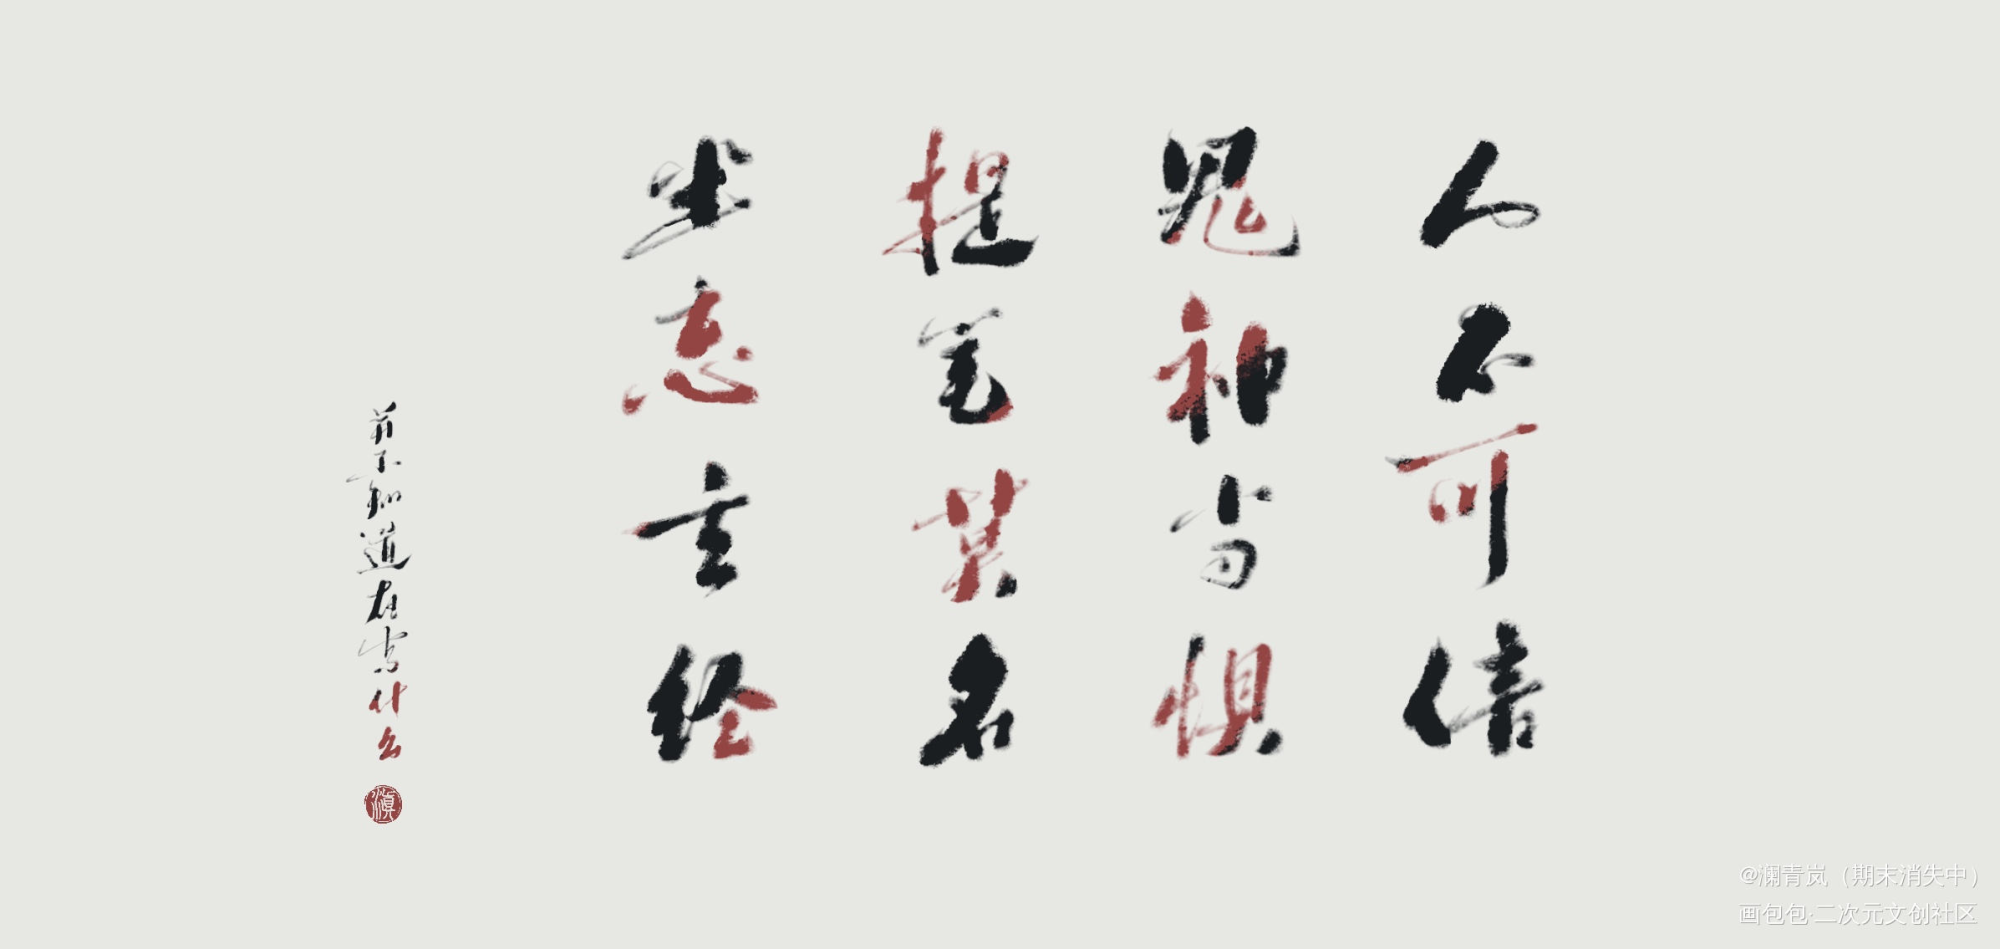 人不可信
鬼神尚惧
提笔莫名
坐忘玄经
并不知道在写什么
@澜青岚（期末消失中）
画包包·二次元文创社区